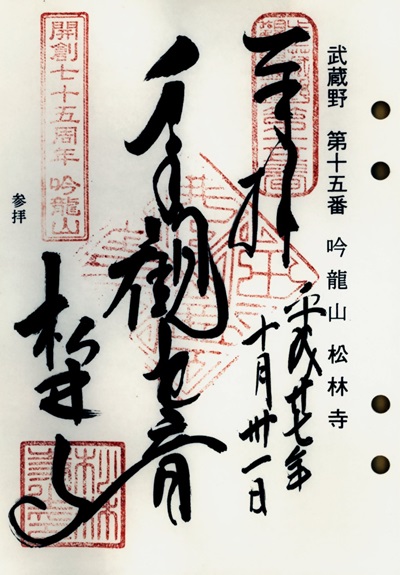 武蔵野 第十五番 吟龍山 松林寺
奉拝
平成廿七年
十月卅一日
千手観世音
松林寺
開創七十五周年 吟龍山
参拝